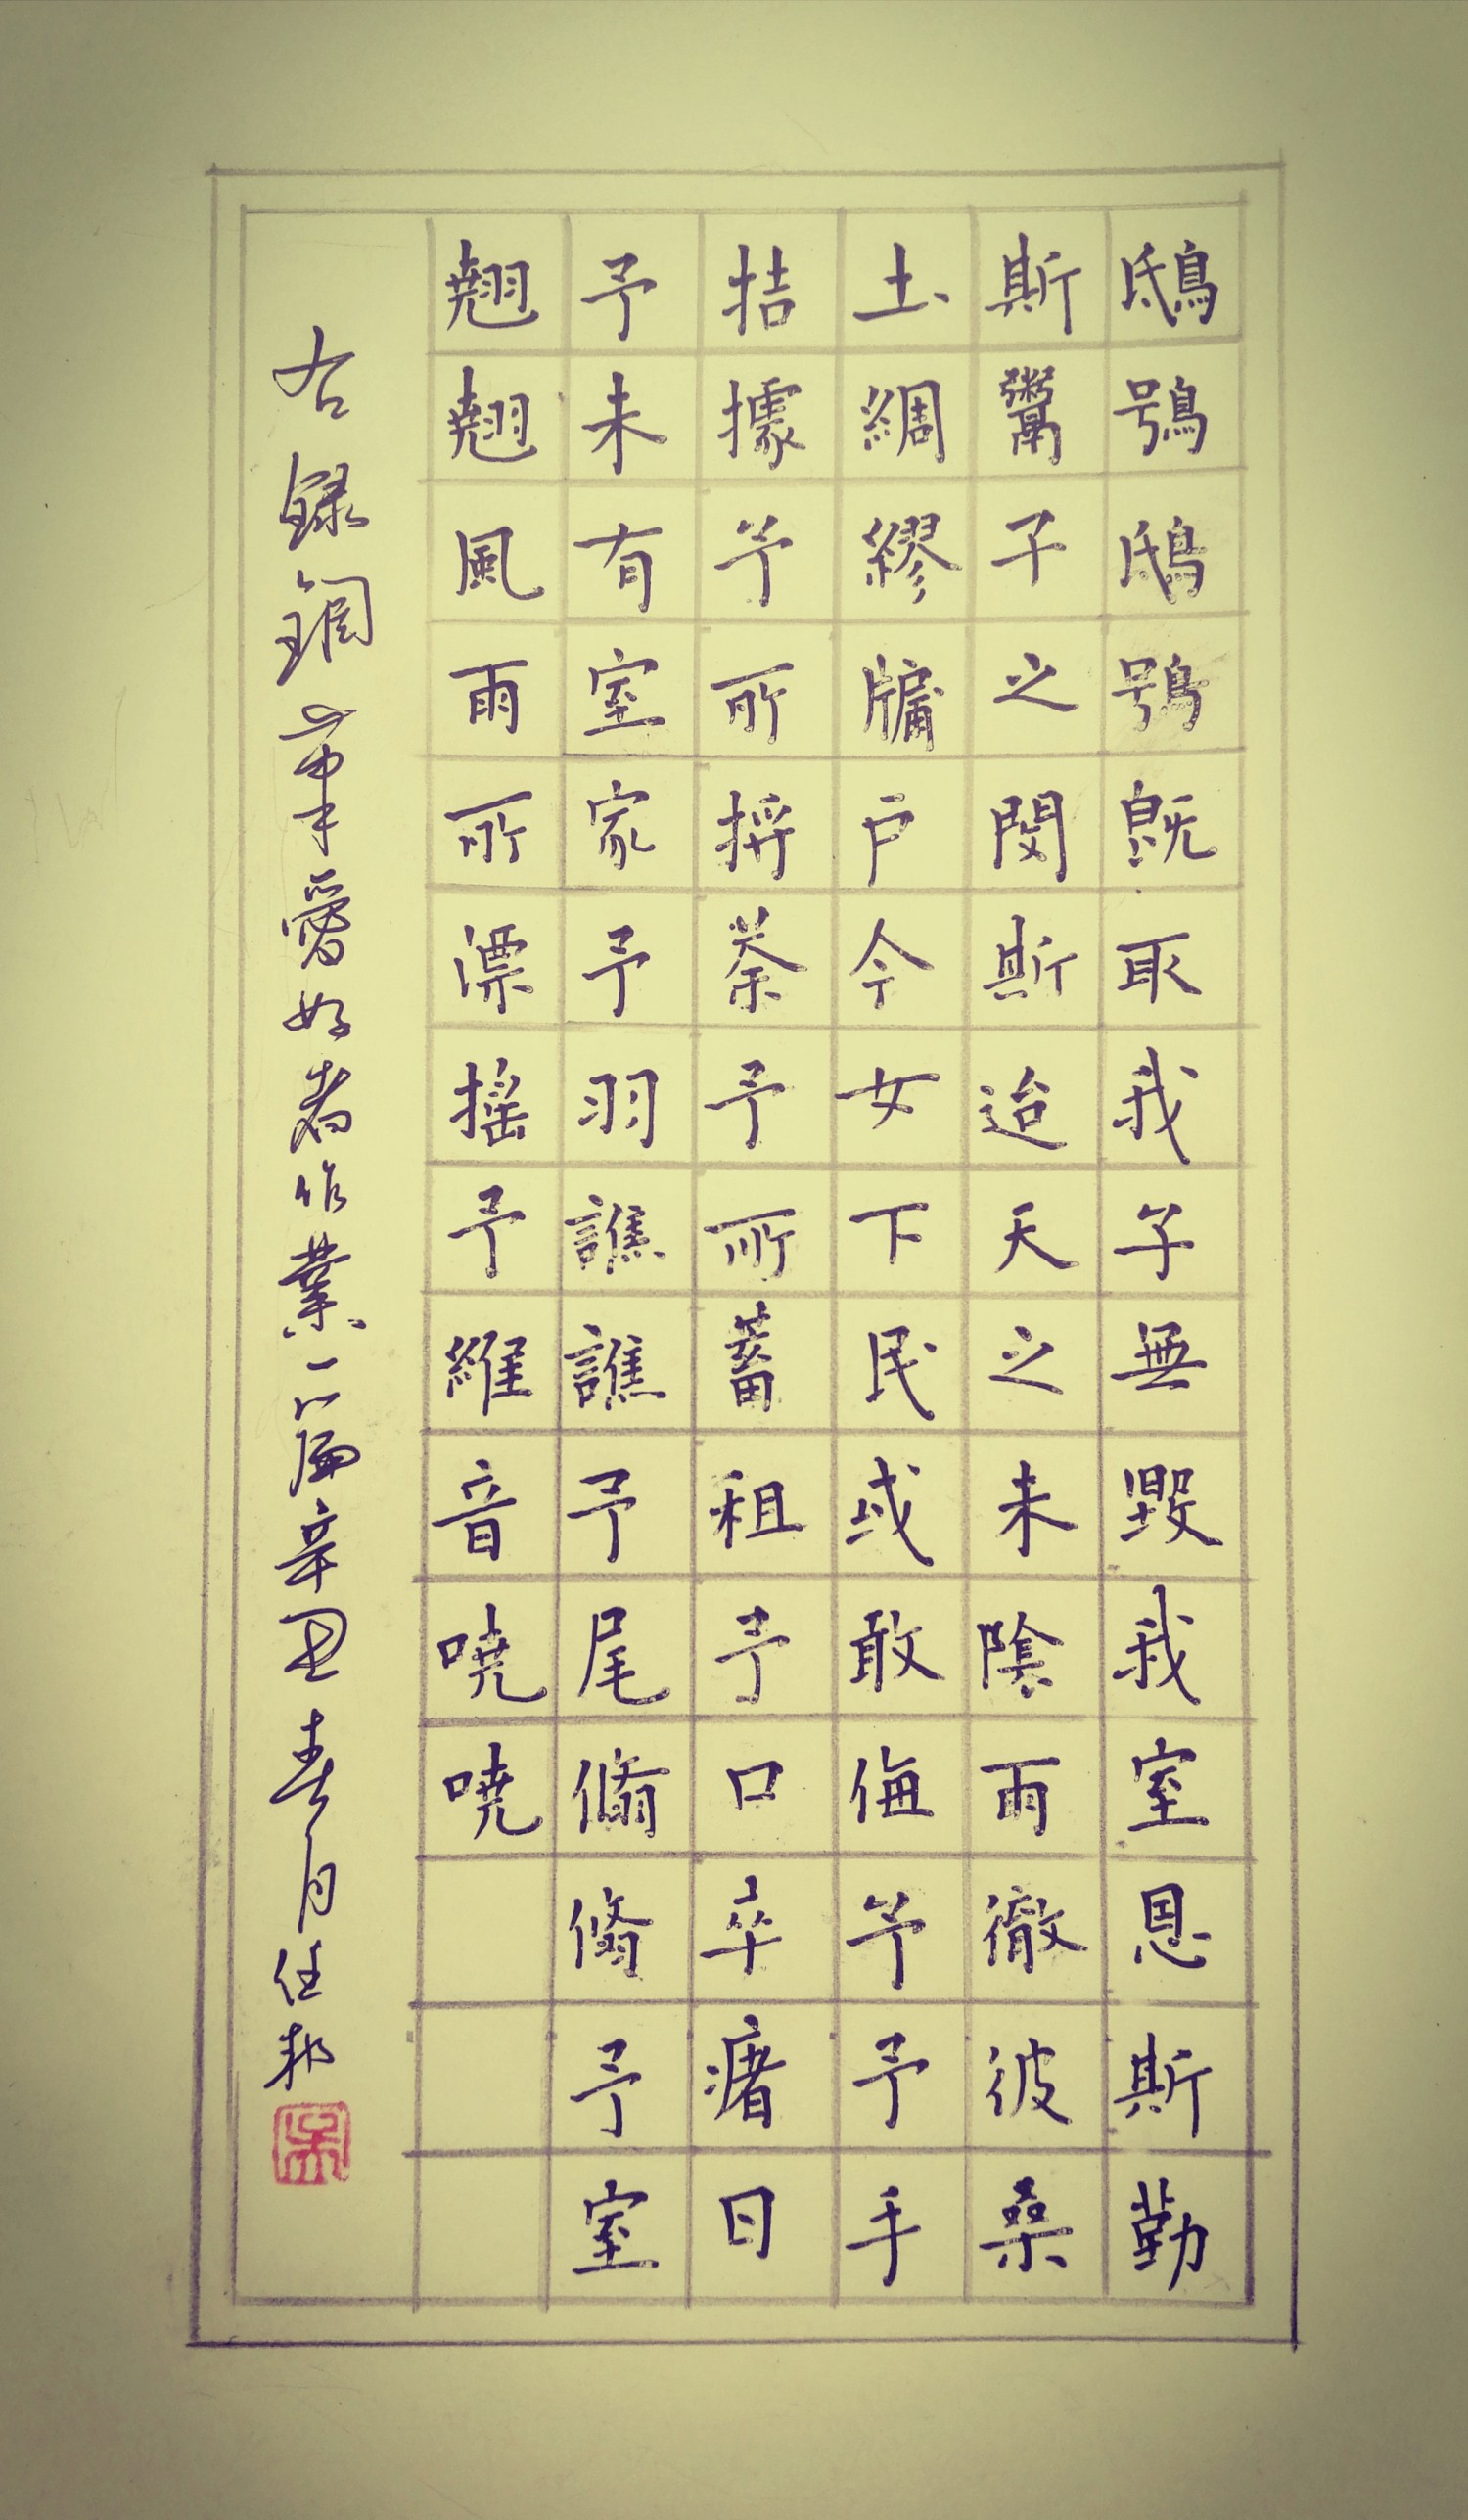 鴟鴞鴟鴞既取我子無毀我室恩斯勤
斯鬻子之閔斯迨天之未陰雨徹彼桑
土綢繆牖戶今女下民或敢侮予予手
拮據予所捋荼予所蓄租予口卒瘏曰
予未有室家予羽譙譙予尾翛翛予室
翹翹風雨所漂搖予維音嘵嘵
右錄